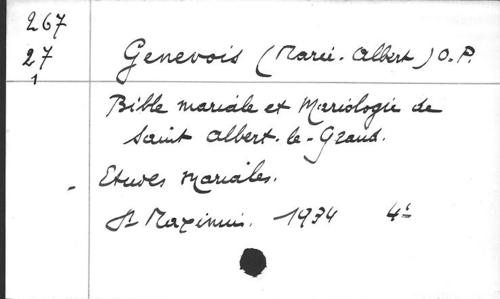 267
27
1
Genevois (Marie-Albert) O.P.
Bible mariale et Mariologie de
Saint Albert-le-Grand.
- Etudes Mariales.
St Maximin. 1934 4°